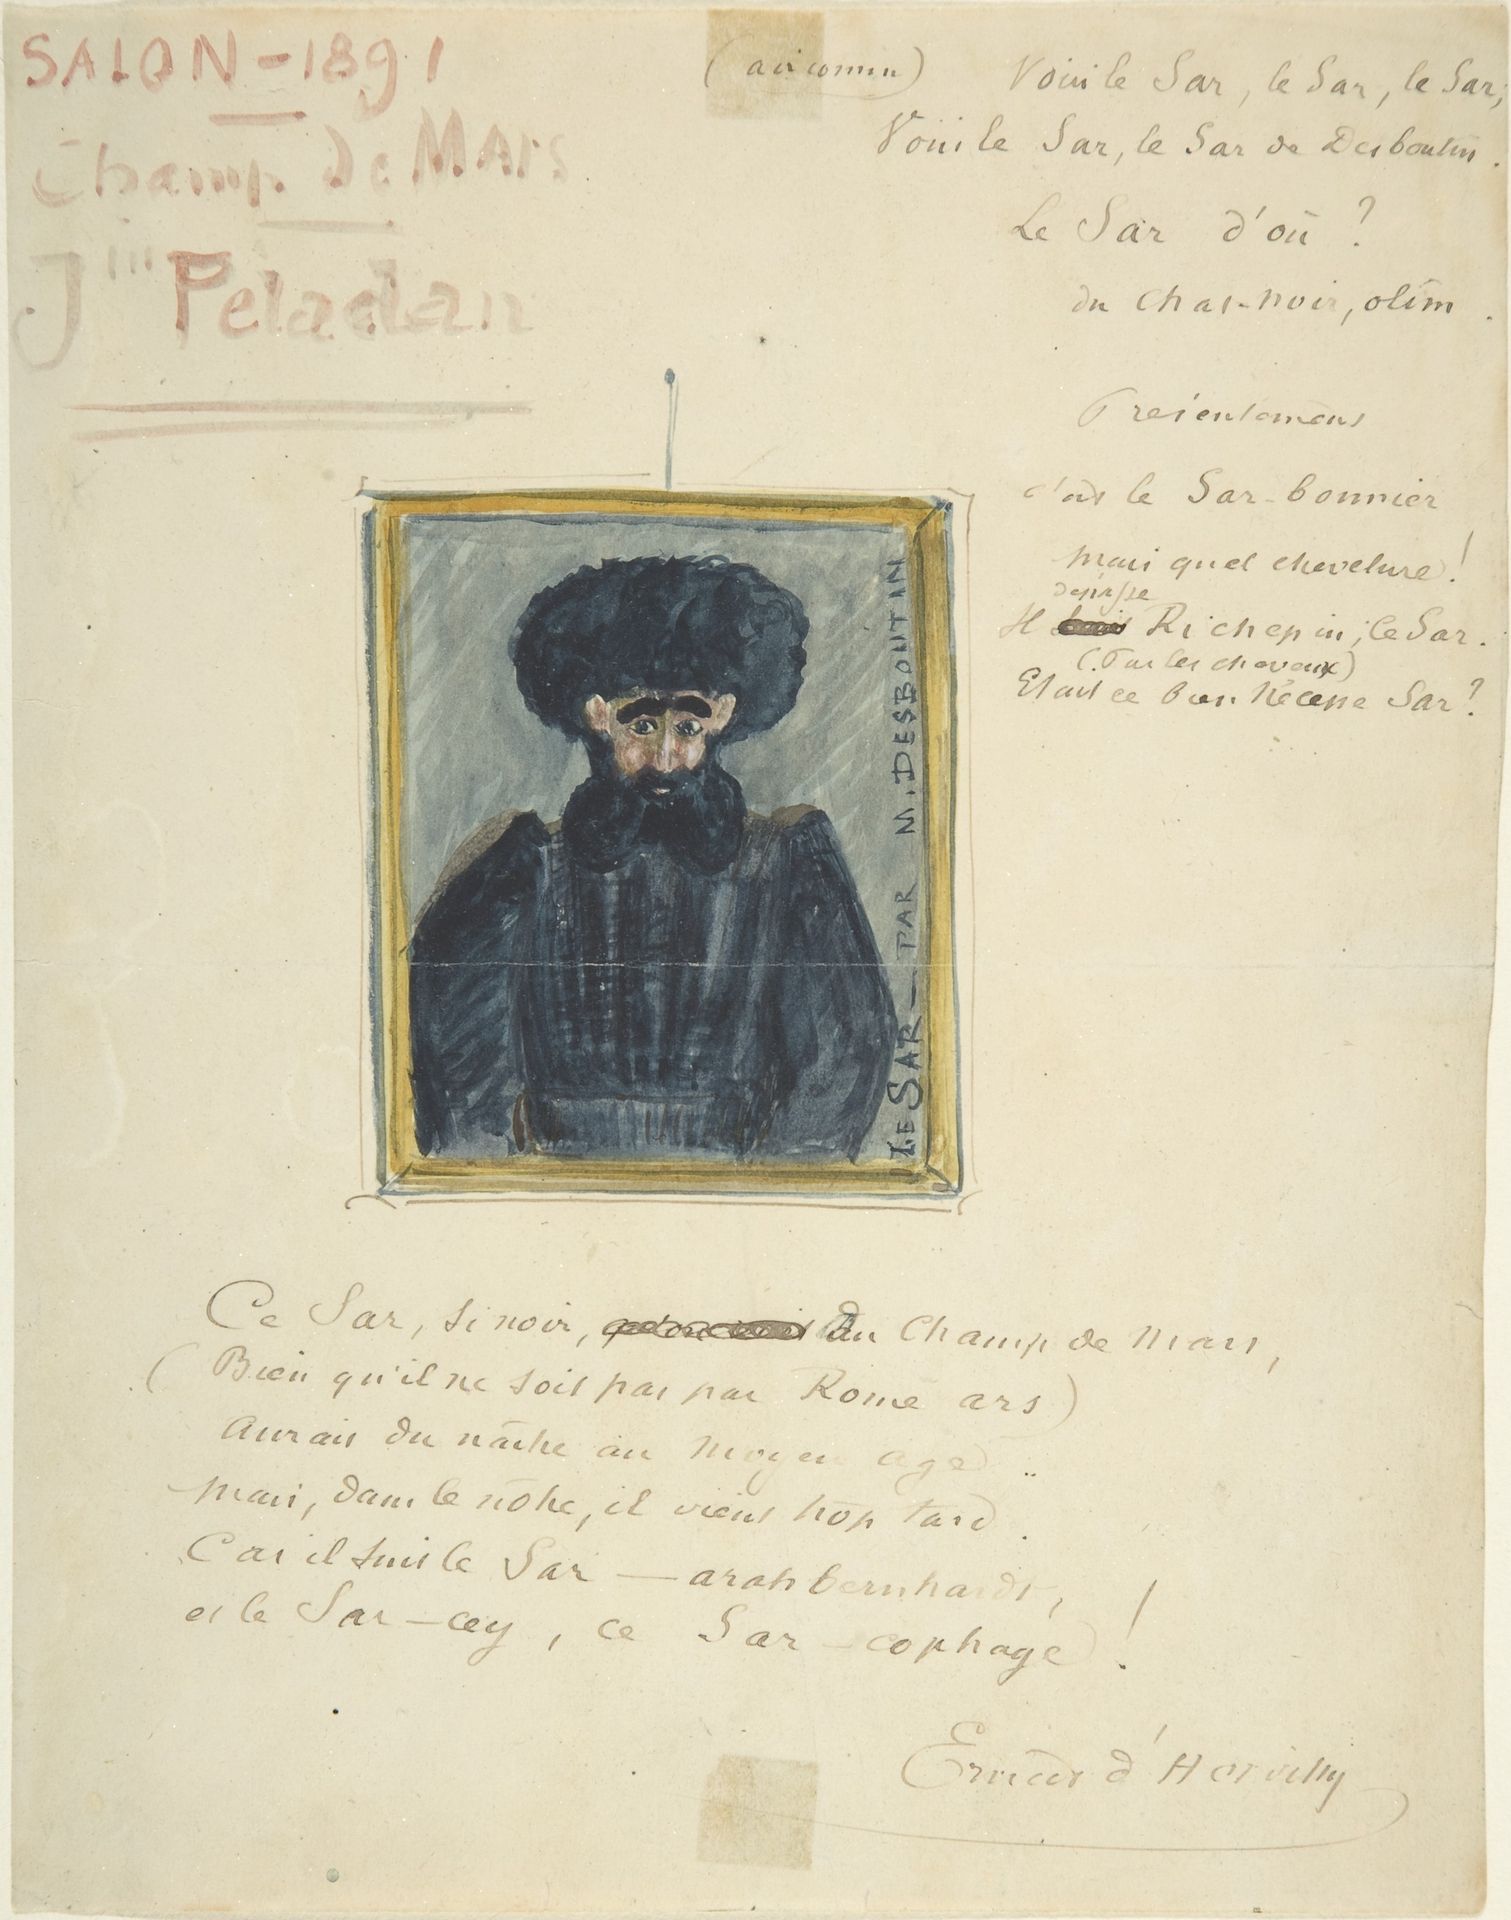 SALON - 1891
Champ de Mars
J^in Peladan
(air connu)
Voici le Sar, le Sar, le Sar,
Voici le Sar, le Sar de Desboutin.
Le Sar d'où ?
du Chat-noir, olim.
Présentement
c'est le Sar-bonnier
mais quel chevelure !
dépasse
Il Richepin, le Sar.
(Par les cheveux)
Etait ce bien Nécesse Sar ?
LE SAR — PAR M. DESBOUTIN
Ce Sar, si noir, du Champ de Mars,
(Bien qu'il ne soit pas par Rome ars)
Aurait du naître au Moyen age ..
Mais, dans le nôtre, il vient trop tard.
Car il suit le Sar — arah bernhardt,
et le Sar-cey, ce Sar-cophage !
Ernest d'Hervilly